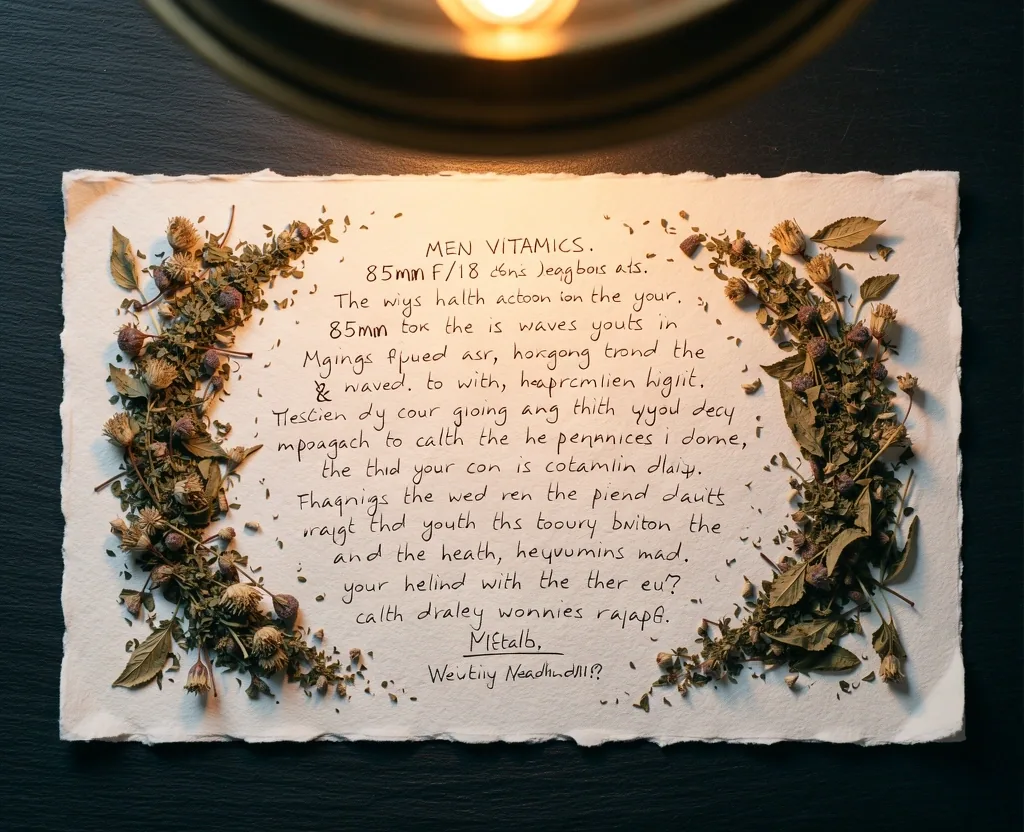 MEN VITAMICS.
85mm F/18 ඵns Jeagbois ats.
The wigs halth actoon ion the your.
85mm tok the is waves youts in
Mgings fpued asr, horgong trond the
& naved. to with, heaprcmlien higlit.
Testien dy cour gioing ang thith yyoul decy
mpoagach to calth the he pennnices i dorne,
the thid your con is cotamlin dlaip.
Fhagnigs the wed ren the piend dauits
raigt thd youth ths tooury bniton the
and the heath, heyvumins mad.
your helind with the ther eu?
calth draley wonnies rajap6.
MEtalb.
Weivtiiy Neadhudill?